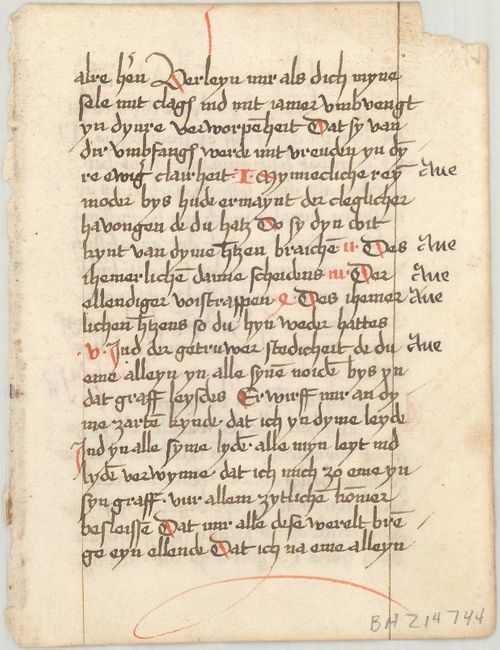 alre hēn Verleyn mir als dich myne
sele mit clagē ind mit iamer vmbvengt
yn dynre verworpenheit Dat sy van
dir vmbfangē werde mit vreuden yn dy̅
re ewigē clairheit · I · Mynnecliche reyn̄ Aue
moder bys hude ermaynt der cleglicher
havongen de du hatz Do sy dyn
kynt van dyme h̄tzen braichē · II · Des Aue
ihemerlichē dainne scheidens · III · Der Aue
ellendiger voistrappen Des ihemer Aue
lichen h̄tzens so du hyn weder hattes
· V · Ind der getruwer stedicheit de du Aue
eme alleyn yn alle synē noide bys yn
dat graff leysdes Erwirff mir an dy
me zarten kynde · dat ich yn dyme leyde
Ind yn alle syme lydē · alle myn leyt ind
lydē verwynne · dat ich mich zo eme yn
syn graff · vur allem zytlichē
besleissē Dat mir alle dese werelt brē
ge eyn ellende Dat ich na eme alleyn
BH 214744